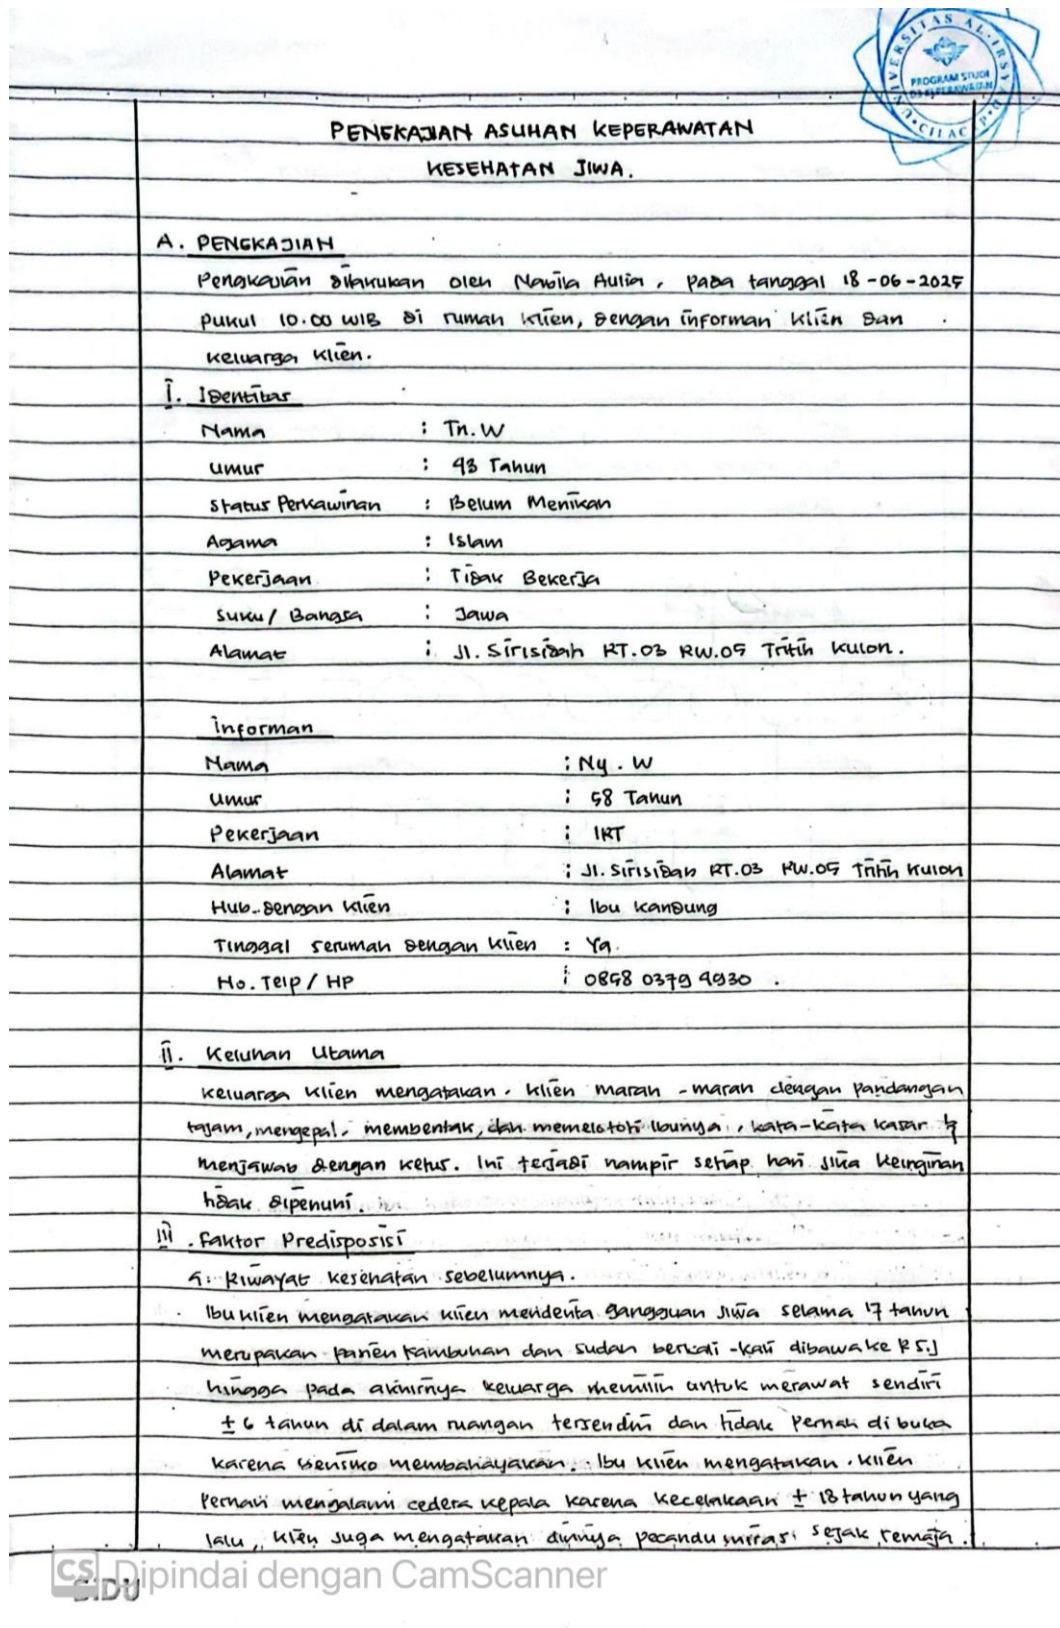 UNIVERSITAS AL-IRSYAD
PROGRAM STUDI
D3 KEPERAWATAN
CILACAP
PENGKAJIAN ASUHAN KEPERAWATAN
KESEHATAN JIWA.
A. PENGKAJIAN
Pengkajian dilakukan oleh Nabila Aulia, pada tanggal 18-06-2025
pukul 10.00 WIB di rumah klien, dengan informan klien dan
keluarga klien.
I. Identitas
Nama : Tn. W
Umur : 43 Tahun
Status Perkawinan : Belum Menikah
Agama : Islam
Pekerjaan : Tidak Bekerja
Suku / Bangsa : Jawa
Alamat : Jl. Sirisidah RT.03 RW.05 Tritih Kulon.
Informan
Nama : Ny. W
Umur : 58 Tahun
Pekerjaan : IRT
Alamat : Jl. Sirisidah RT.03 RW.05 Tritih Kulon
Hub. dengan klien : Ibu Kandung
Tinggal serumah dengan klien : Ya.
No. Telp / HP : 0858 0379 4930
II. Keluhan Utama
Keluarga klien mengatakan klien marah-marah dengan pandangan
tajam, mengepal, membentak, dan memelototi ibunya, kata-kata kasar &
menjawab dengan ketus. Ini terjadi hampir setiap hari jika keinginan
tidak dipenuhi.
III. Faktor Predisposisi
Riwayat kesehatan sebelumnya.
Ibu klien mengatakan klien menderita gangguan jiwa selama 17 tahun
merupakan pasien kambuhan dan sudah berkali-kali dibawa ke RSJ
hingga pada akhirnya keluarga memilih untuk merawat sendiri
± 6 tahun di dalam ruangan tersendiri dan tidak pernah di buka
karena berisiko membahayakan. Ibu klien mengatakan klien
pernah mengalami cedera kepala karena kecelakaan ± 18 tahun yang
lalu, klien juga mengatakan dirinya pecandu miras sejak remaja.
CS Dipindai dengan CamScanner
SIDU